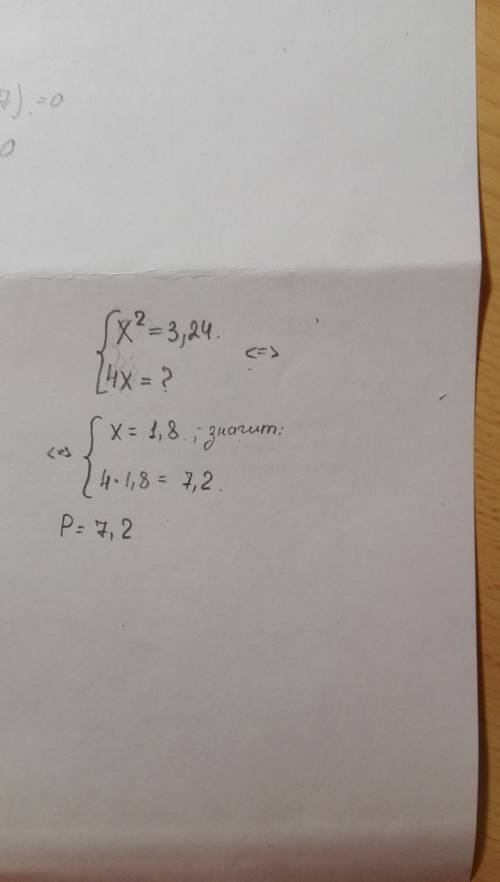 7). = 0
0
x² = 3,24. <=>
4x = ?
<=> x = 1,8. ; значит:
4 · 1,8 = 7,2.
P = 7,2